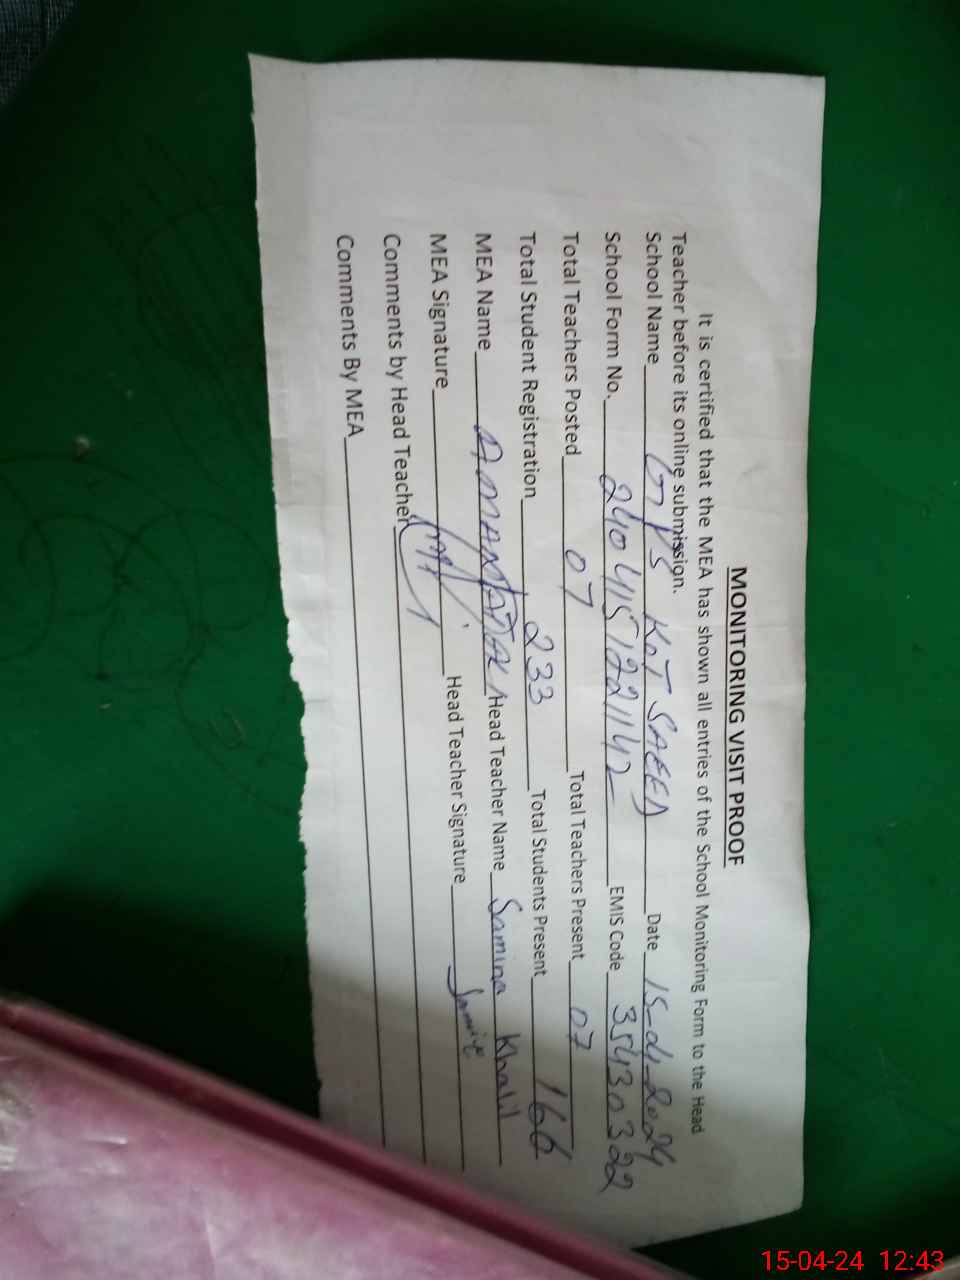 MONITORING VISIT PROOF
It is certified that the MEA has shown all entries of the School Monitoring Form to the Head
Teacher before its online submission.
School Name GPS KOT SAEED Date 15-04-2024
School Form No. 2404151221142 EMIS Code 35430322
Total Teachers Posted 07 Total Teachers Present 07
Total Student Registration 233 Total Students Present 166
MEA Name Head Teacher Name Samina Khalil
MEA Signature Head Teacher Signature
Comments by Head Teacher
Comments By MEA
15-04-24 12:43